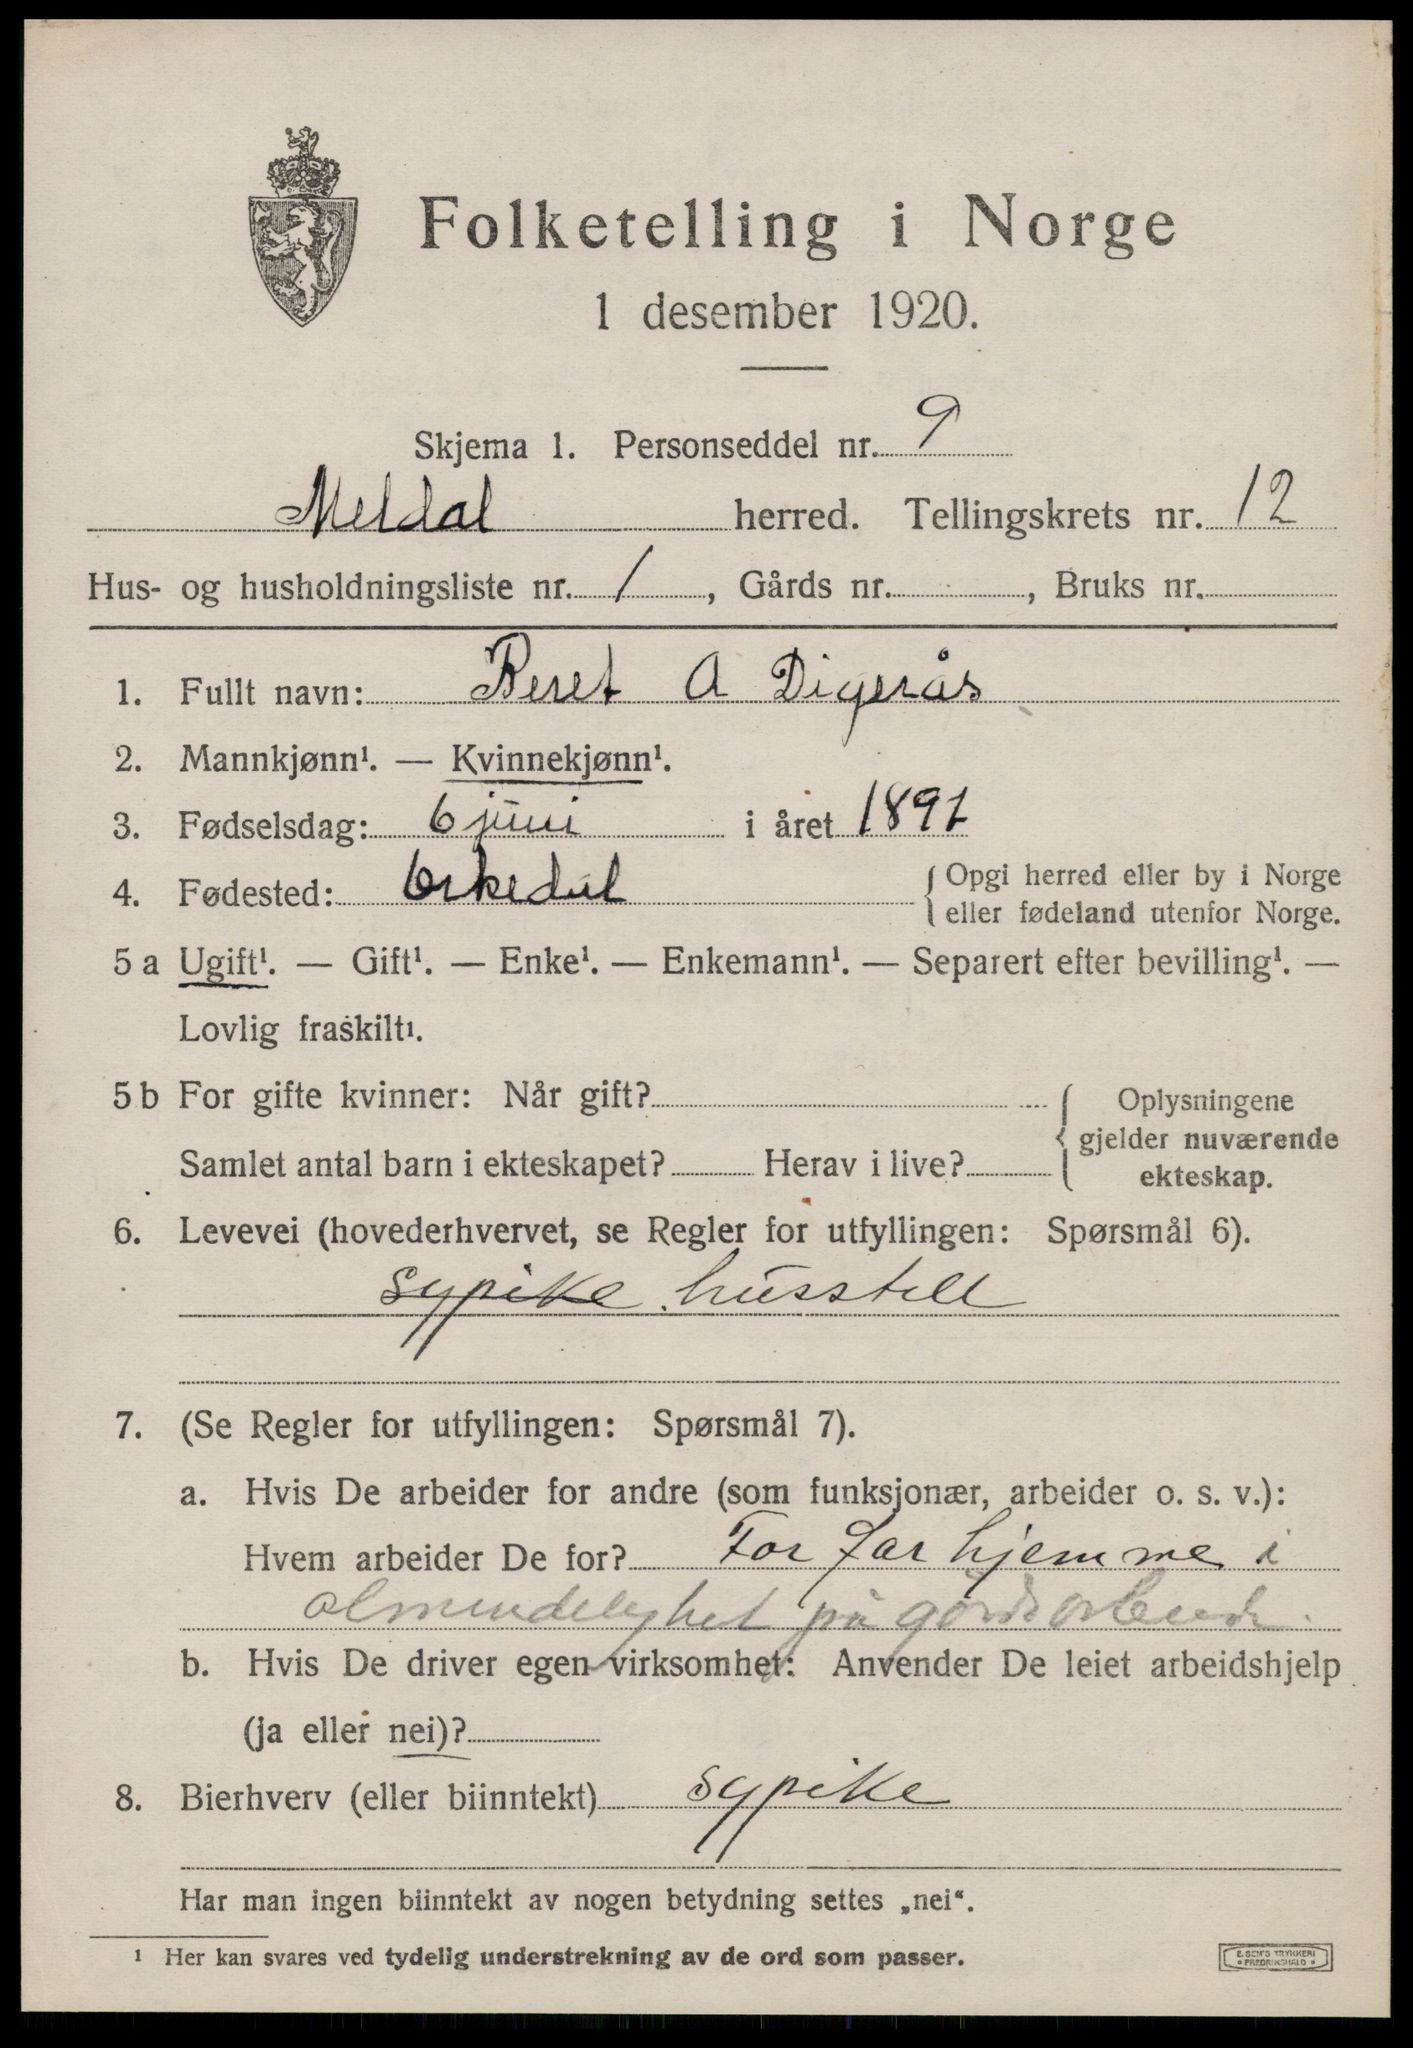 Folketelling i Norge
1 desember 1920.
Skjema 1. Personseddel nr. 9
Meldal herred. Tellingskrets nr. 12
Hus- og husholdningsliste nr. 1, Gårds nr. , Bruks nr.
1. Fullt navn: Beret A Digerås
2. Mannkjønn¹. — Kvinnekjønn¹.
3. Fødselsdag: 6 juni i året 1891
4. Fødested: Orkedal
Opgi herred eller by i Norge
eller fødeland utenfor Norge.
5 a Ugift¹. — Gift¹. — Enke¹. — Enkemann¹. — Separert efter bevilling¹. —
Lovlig fraskilt¹.
5 b For gifte kvinner: Når gift?
Samlet antal barn i ekteskapet? Herav i live?
Oplysningene
gjelder nuværende
ekteskap.
6. Levevei (hovederhvervet, se Regler for utfyllingen: Spørsmål 6).
sypike husstell
7. (Se Regler for utfyllingen: Spørsmål 7).
a. Hvis De arbeider for andre (som funksjonær, arbeider o. s. v.):
Hvem arbeider De for? For far hjemme i
almindelighet på
b. Hvis De driver egen virksomhet: Anvender De leiet arbeidshjelp
(ja eller nei)?
8. Bierhverv (eller biinntekt) sypike
Har man ingen biinntekt av nogen betydning settes „nei“.
¹ Her kan svares ved tydelig understrekning av de ord som passer.
E. SEM'S TRYKKERI
FREDRIKSHALD